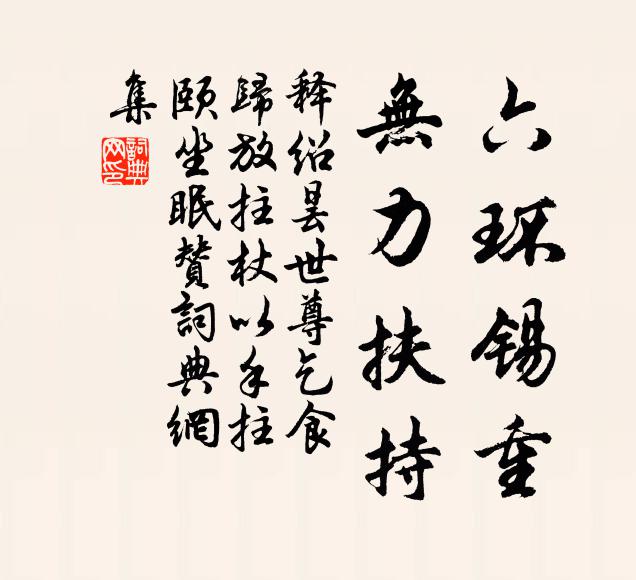 六环锡重
無力扶持
释绍昙世尊乞食
歸放拄杖以手拄
頤坐眠贊詞典網
集
詞典
网印